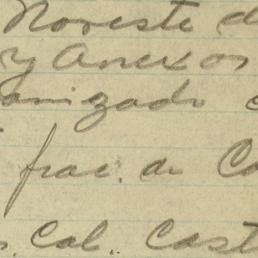 Noreste d
y Anexos
anizado
frac. de Co
s. Cal. Cast